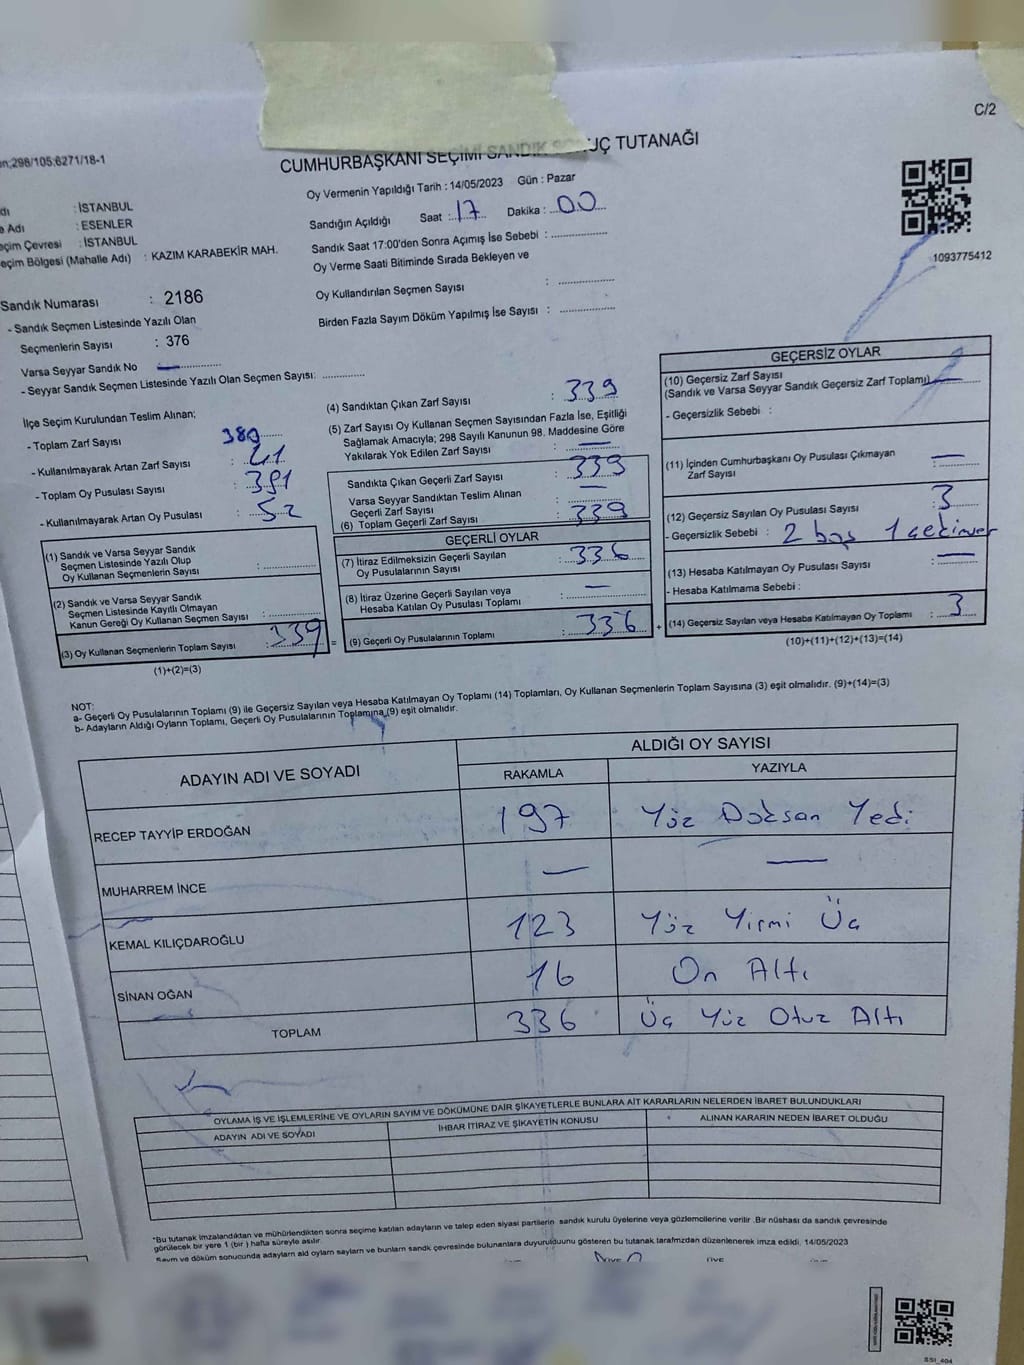 C/2
298/105;6271/18-1
CUMHURBAŞKANI SEÇİMİ SANDIK TUTANAĞI
Oy Vermenin Yapıldığı Tarih : 14/05/2023 Gün : Pazar
Sandığın Açıldığı Saat : 17 Dakika : 00
Sandık Saat 17:00'den Sonra Açımış İse Sebebi :
Oy Verme Saati Bitiminde Sırada Bekleyen ve
Oy Kullandırılan Seçmen Sayısı :
Birden Fazla Sayım Döküm Yapılmış İse Sayısı :
1093775412
: İSTANBUL
Adı : ESENLER
Çevresi : İSTANBUL
Bölgesi (Mahalle Adı) : KAZIM KARABEKİR MAH.
Sandık Numarası : 2186
- Sandık Seçmen Listesinde Yazılı Olan
Seçmenlerin Sayısı : 376
Varsa Seyyar Sandık No —
- Seyyar Sandık Seçmen Listesinde Yazılı Olan Seçmen Sayısı:
İlçe Seçim Kurulundan Teslim Alınan;
- Toplam Zarf Sayısı 380
- Kullanılmayarak Artan Zarf Sayısı : 41
- Toplam Oy Pusulası Sayısı : 391
- Kullanılmayarak Artan Oy Pusulası : 52
(1) Sandık ve Varsa Seyyar Sandık
Seçmen Listesinde Yazılı Olup
Oy Kullanan Seçmenlerin Sayısı :
(2) Sandık ve Varsa Seyyar Sandık
Seçmen Listesinde Kayıtlı Olmayan
Kanun Gereği Oy Kullanan Seçmen Sayısı :
(3) Oy Kullanan Seçmenlerin Toplam Sayısı : 339 =
(1)+(2)=(3)
(4) Sandıktan Çıkan Zarf Sayısı : 339
(5) Zarf Sayısı Oy Kullanan Seçmen Sayısından Fazla İse, Eşitliği
Sağlamak Amacıyla; 298 Sayılı Kanunun 98. Maddesine Göre
Yakılarak Yok Edilen Zarf Sayısı : —
Sandıkta Çıkan Geçerli Zarf Sayısı : 339
Varsa Seyyar Sandıktan Teslim Alınan
Geçerli Zarf Sayısı : —
(6) Toplam Geçerli Zarf Sayısı : 339
GEÇERLİ OYLAR
(7) İtiraz Edilmeksizin Geçerli Sayılan
Oy Pusulalarının Sayısı : 336
(8) İtiraz Üzerine Geçerli Sayılan veya
Hesaba Katılan Oy Pusulası Toplamı : —
(9) Geçerli Oy Pusulalarının Toplamı : 336 +
GEÇERSİZ OYLAR
(10) Geçersiz Zarf Sayısı
(Sandık ve Varsa Seyyar Sandık Geçersiz Zarf Toplamı) —
- Geçersizlik Sebebi :
(11) İçinden Cumhurbaşkanı Oy Pusulası Çıkmayan
Zarf Sayısı : —
(12) Geçersiz Sayılan Oy Pusulası Sayısı : 3
- Geçersizlik Sebebi : 2 boş 1
(13) Hesaba Katılmayan Oy Pusulası Sayısı : —
- Hesaba Katılmama Sebebi :
(14) Geçersiz Sayılan veya Hesaba Katılmayan Oy Toplamı : 3
(10)+(11)+(12)+(13)=(14)
NOT:
a- Geçerli Oy Pusulalarının Toplamı (9) ile Geçersiz Sayılan veya Hesaba Katılmayan Oy Toplamı (14) Toplamları, Oy Kullanan Seçmenlerin Toplam Sayısına (3) eşit olmalıdır. (9)+(14)=(3)
b- Adayların Aldığı Oyların Toplamı, Geçerli Oy Pusulalarının Toplamına (9) eşit olmalıdır.
ADAYIN ADI VE SOYADI ALDIĞI OY SAYISI
RAKAMLA YAZIYLA
RECEP TAYYİP ERDOĞAN 197 Yüz Doksan Yedi
MUHARREM İNCE — —
KEMAL KILIÇDAROĞLU 123 Yüz Yirmi Üç
SİNAN OĞAN 16 On Altı
TOPLAM 336 Üç Yüz Otuz Altı
OYLAMA İŞ VE İŞLEMLERİNE VE OYLARIN SAYIM VE DÖKÜMÜNE DAİR ŞİKAYETLERLE BUNLARA AİT KARARLARIN NELERDEN İBARET BULUNDUKLARI
ADAYIN ADI VE SOYADI İHBAR İTİRAZ VE ŞİKAYETİN KONUSU ALINAN KARARIN NEDEN İBARET OLDUĞU
*Bu tutanak imzalandıktan ve mühürlendikten sonra seçime katılan adayların ve talep eden siyasi partilerin sandık kurulu üyelerine veya gözlemcilerine verilir .Bir nüshası da sandık çevresinde
görülecek bir yere 1 (bir ) hafta süreyle asılır.
Sayım ve döküm sonucunda adayların ald oyların sayların ve bunların sandk çevresinde bulunanlara duyurulduunu gösteren bu tutanak tarafmzdan düzenlenerek imza edildi. 14/05/2023